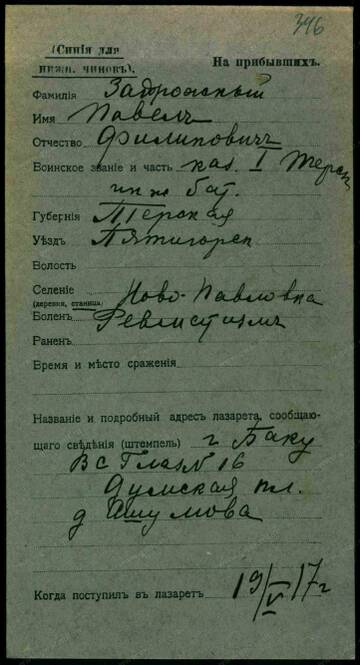 346
(Синія для
нижн. чиновъ).
На прибывшихъ.
Фамилія Задорожный
Имя Павелъ
Отчество Филиповичъ
Воинское званіе и часть каз. I Терск
пл. бат.
Губернія Терская
Уѣздъ Пятигорск
Волость
Селеніе
(деревня, станица) Ново-Павловка
Боленъ Ревматизмъ
Раненъ
Время и мѣсто сраженія
Названіе и подробный адресъ лазарета, сообщаю-
щаго свѣдѣнія (штемпель) г Баку
В С Г лаз № 16
Думская пл.
д Ашумова
Когда поступилъ въ лазаретъ 19/V 17 г